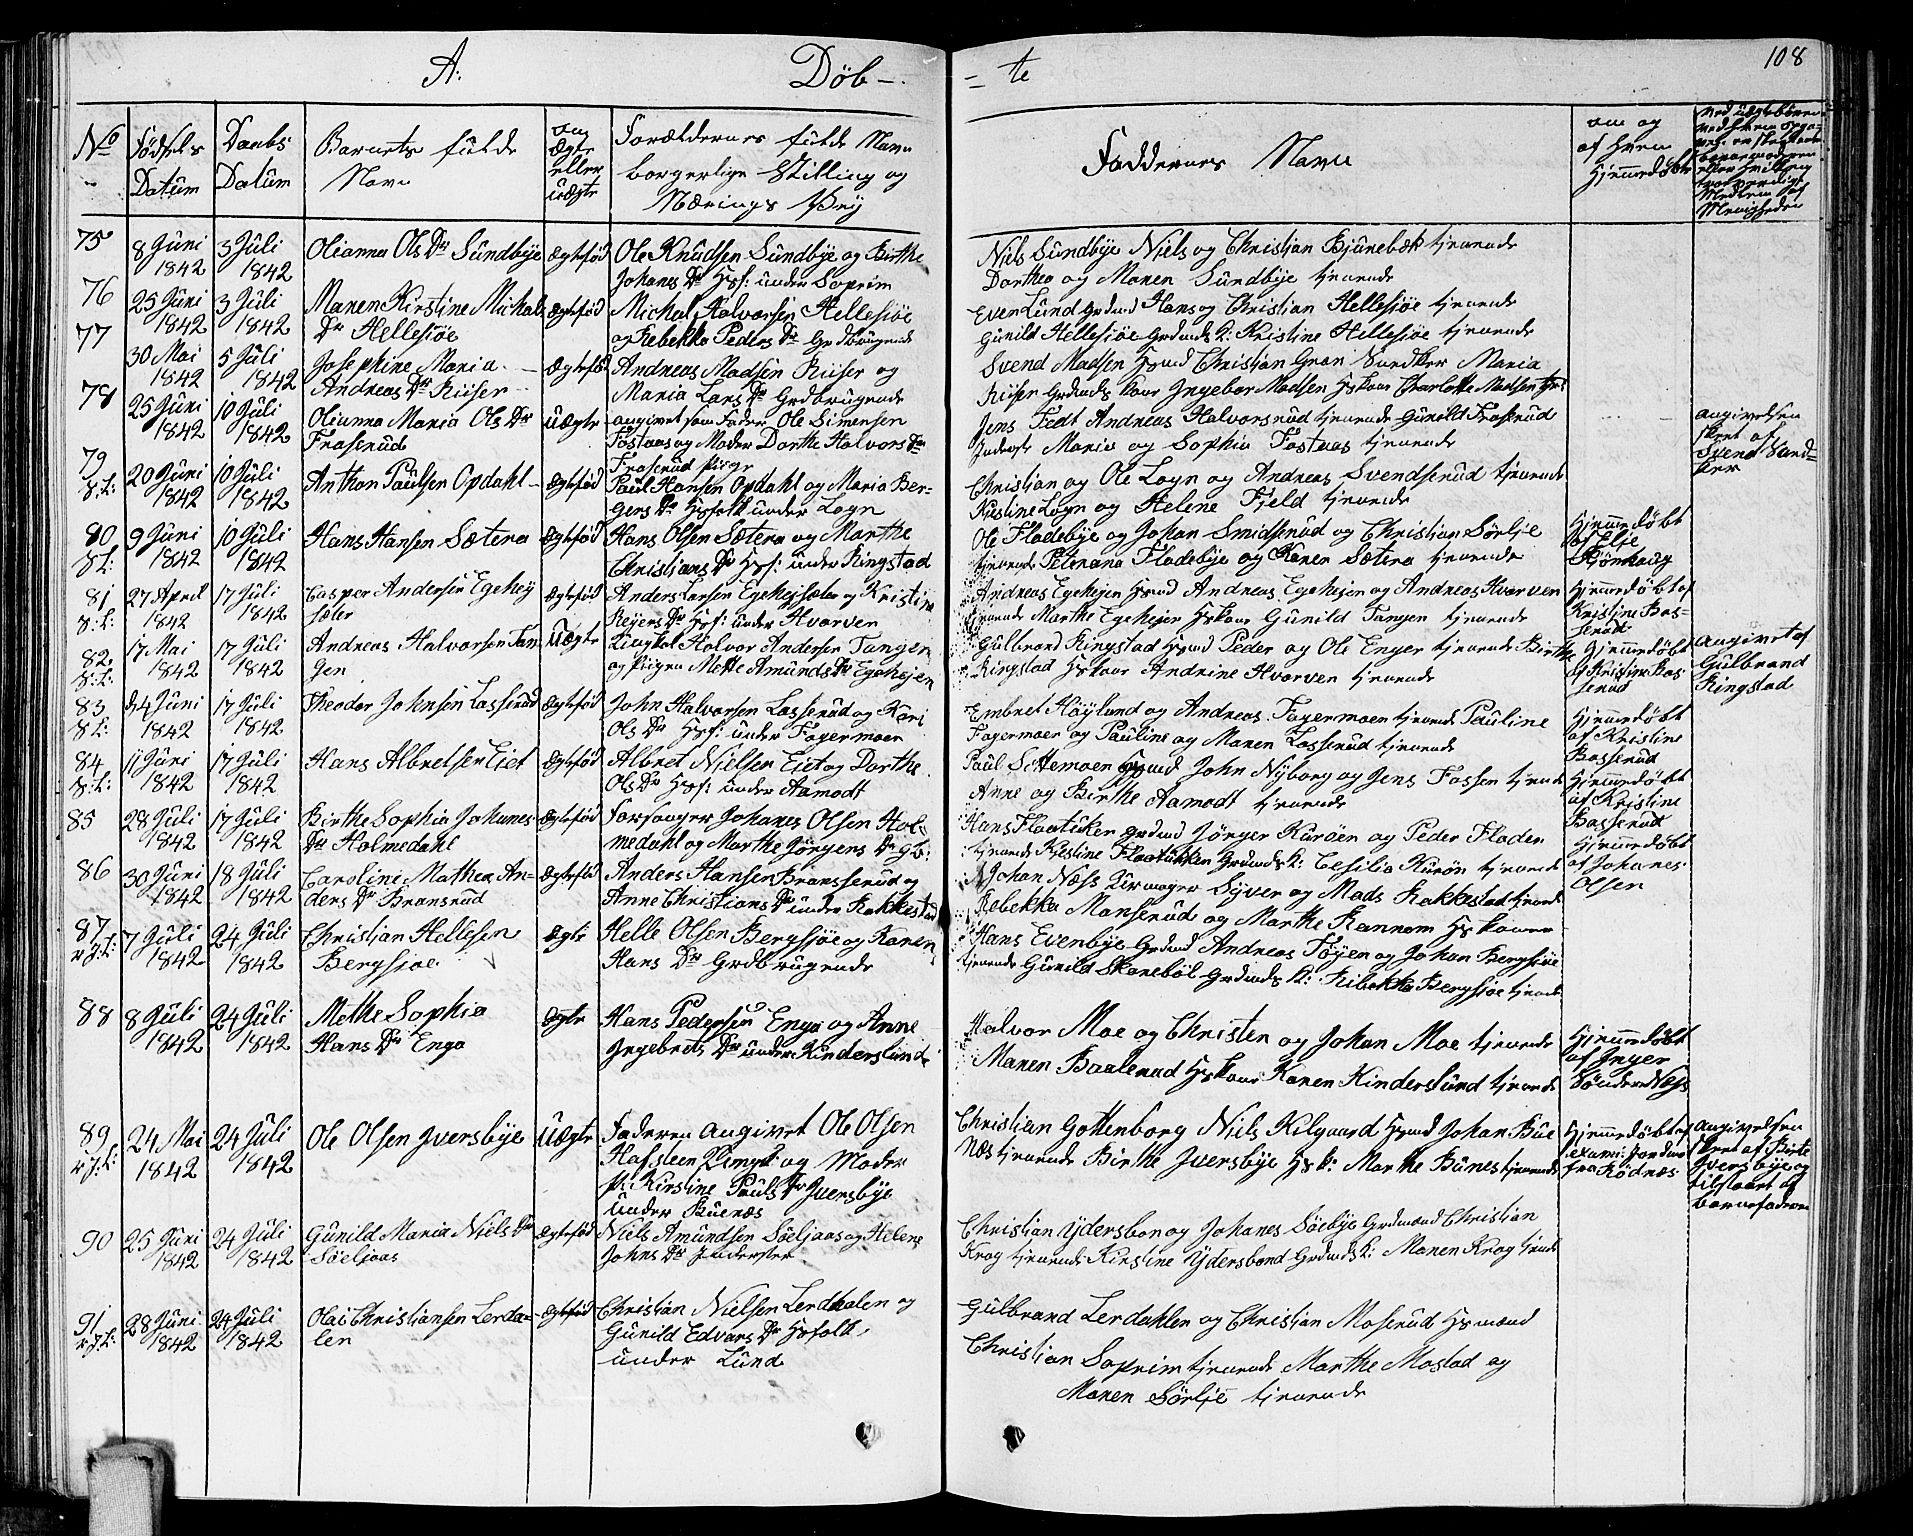 A:
Döb –
– te
108
No
Fødsels Datum
Daabs Datum
Barnets fulde Navn
om ægte eller uægte
Forældrenes fulde Navn borgerlige Stilling og Nærings Vej
Faddernes Navn
om og af hvem Hjemmedøbt
75
8 Juni 1842
3 Juli 1842
Olianna Ols Dr Sundbye
Ægtefød
Ole Knudsen Sundbye og Birthe
Johanes Dr Hsf: under Soprim
Niels Sundbye Niels og Christian Bjünebæk tjenende
Dorthea og Maren Sundbye tjenende
76
25 Juni 1842
3 Juli 1842
Maren Kirstine Michels
Dr Hellesiøe
Ægtefød
Michel Halvorsen Hellesiøe
og Rebekka Peders Dr Grdbrugende
Even Lund Grdmd Hans og Christian Hellesiøe tjenende
Gunild Hellesiøe Grdmds K: Kristine Hellesiøe tjenende
77
30 Mai 1842
5 Juli 1842
Josephine Maria
Andreas Dr Riiser
Ægtefød
Andreas Madsen Riiser og
Maria Lars Dr Grdbrugende
Svend Madsen Hsmd Christian Gran Sandker Maria
Riiser Grdmds Kone Ingebor Madsen Hskone Charlotte Madsen
78
25 Juni 1842
10 Juli 1842
Olianna Maria Ols Dr
Froserud
Uægte
angivet som Fader Ole Simensen
Fostaas og Moder Dorthe Halvors Dr
Froserud Pige
Jens Fedt Andreas Halvorsrud tjenende Gunild Froserud
Inderst Maria og Sophia Fostaas tjenende
angivelsen
skeet af
Svend Sand-
ker
79
v. t:
20 Juni 1842
10 Juli 1842
Anthon Paulsen Opdahl
Ægtefød
Paul Hansen Opdahl og Maria Ber-
gers Dr Hsfolk under Logn
Christian og Ole Logn og Andreas Svendserud tjenende
Kirstine Logn og Helene Fjeld tjenende
80
9 Juni 1842
10 Juli 1842
Hans Hansen Sætera
Ægtefød
Hans Olsen Sætera og Marthe
Christians Dr Hsf: under Ringstad
Ole Fladebye og Johan Smidserud og Christian Sørlie
tjenende Peternana Fladebye og Karen Sætera tjenende
Hjemmedøbt
af Elje
Bjønhaug
81
27 April 1842
17 Juli 1842
Casper Andersen Egehej
soler
Ægtefød
Anders Larsen Egehejsoler og Kristine
Rejers Dr Hsf: under Hvarven
Andreas Egehejen Hsmd Andreas Egehejen og Andreas Hvarven
tjenende Marthe Egehejen Hskone Gunild Tangen tjenende
Hjemmedøbt af
Kristine Bas-
serud
82
17 Mai 1842
17 Juli 1842
Andreas Halvorsen Tan-
gen
Uægte
Ungkal Halvor Andersen Tangen
og Pigen Mette Amunds Dr Egehejen
Gulbrand Ringstad Hsmd Peder og Ole Enger tjenende Birthe
Ringstad Hskone Andrine Hvarven tjenende
Hjemmedøbt
af Kristine Bas-
serud
Angivet af
Gulbrand
Ringstad
83
24 Juni 1842
17 Juli 1842
Theodor Johnsen Losserud
Ægtefød
John Halvorsen Losserud og Kari
Ols Dr Hsf: under Fagermoen
Embret Høylund og Andreas Fagermoen tjenende Pauline
Fagermoen og Pauline og Maren Losserud tjenende
Hjemmedøbt
af Kristine
Basserud
84
11 Juni 1842
17 Juli 1842
Hans Albretsen Eiet
Ægtefød
Albret Nielsen Eiet og Dorthe
Ols Dr Hsf: under Aamodt
Paul Settemoen Hsmd John Nyborg og Jens Fossen tjende
Anne og Birthe Aamodt tjenende
Hjemmedøbt
af Kristine
Basserud
85
28 Juli 1842
17 Juli 1842
Birthe Sophia Johanes
Dr Holmedahl
Ægtefød
Forsanger Johanes Olsen Hol-
medahl og Marthe Jørgens Dr
Hans Flaatüken Grdmd Jørger Kurøen og Peder Floden
tjenende Kjestine Flaatükken Grdmds K: Cesilia Kurön tjenende
Hjemmedøbt
af Johanes
Olsen
86
30 Juni 1842
18 Juli 1842
Caroline Mathea An-
ders Dr Bransrud
Ægtefød
Anders Hansen Bransserud og
Anne Christians Dr under Rakkestad
Johan Næss Kirmager Syver og Mads Rakkestad tjende
Rebekka Manserud og Marthe Rannem Hskoner
87
7 Juli 1842
24 Juli 1842
Christian Hellesen
Bergsjøe
Ægte
Helle Olsen Bergsjøe og Karen
Hans Dr Grdbrugende
Hans Evenbye Grdmd Andreas Tøyen og Johan Bergsjøe
tjenende Gunild Skanebøl Grdmds K: Ribekka Bergsjøe tjende
88
8 Juli 1842
24 Juli 1842
Mathe Sophia
Hans Dr Enga
Ægte
Hans Pedersen Enga og Anne
Ingebrets Dr under Kinderslund
Halvor Moe og Christen og Johan Moe tjenende
Maren Baalerud Hskone Karen Kinderslund tjenende
Hjemmedøbt
af Inger
Søndre Næss
89
24 Mai 1842
24 Juli 1842
Ole Olsen Iversbye
Uægte
Faderen angivet Ole Olsen
Hafsteen og Moder
P: Kirstine Pauls Dr Iversbye
under Buenæs
Christian Gottenborg Niels Kilgaard Hsmd Johan Büe
Næs tjenende Birthe Iversbye Hsk: Marthe Bünes tjenende
Hjemmedøbt af
exami: Jordmor
fra Rödnæs
Angivelsen
skeet af Birte
Iversbye og
tilstaaet af
barnefaderen
90
25 Juni 1842
24 Juli 1842
Gunild Maria Niels Dr
Söeljaas
Ægtefød
Niels Amundsen Söeljaas og Helene
Johns Dr Inderster
Christian Ydersbon og Johanes Søebye Grdmænd Christian
Krog tjenende Kirstine Ydersbond Grdmds K: Maren Krog tjende
91
28 Juni 1842
24 Juli 1842
Olai Christiansen Lerda-
len
Ægtefød
Christian Nielsen Lerdhalen og
Gunild Edvars Dr Hsfolk
under Lund
Gulbrand Lerdahlen og Christian Moserud Hsmænd
Christian Soprim tjenende Marthe Mostad og
Maren Sørlje tjenende